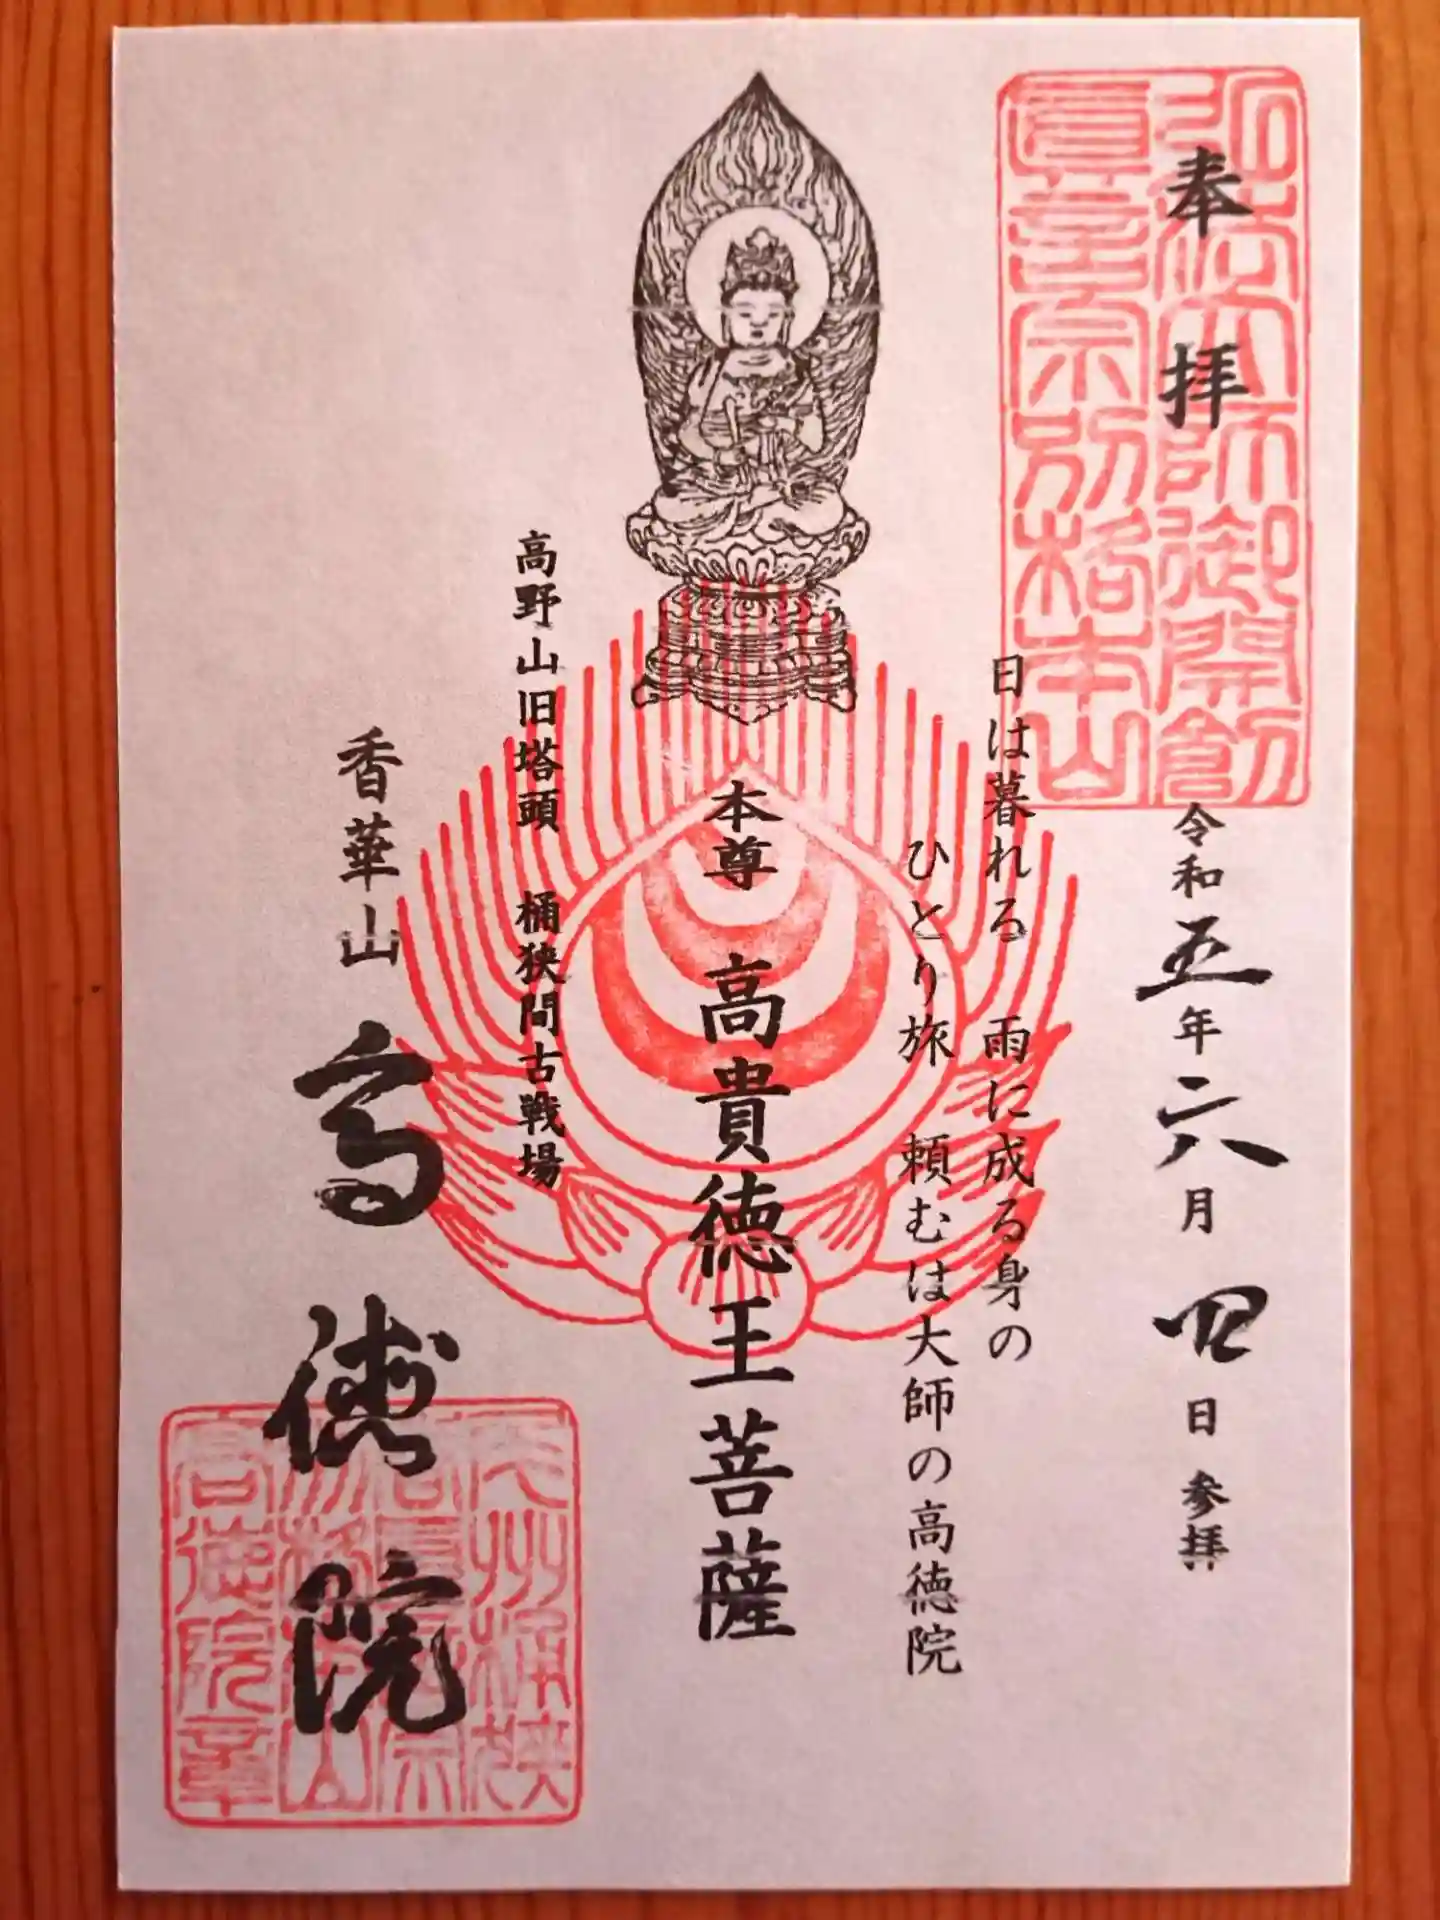 奉拝
弘法大師御開創
真言宗別格本山
令和五年六月四日参拝
日は暮れる 雨に成る身の
ひとり旅 頼むは大師の高徳院
本尊 高貴徳王菩薩
高野山旧塔頭 桶狭間古戦場
香華山 高徳院
高徳院章